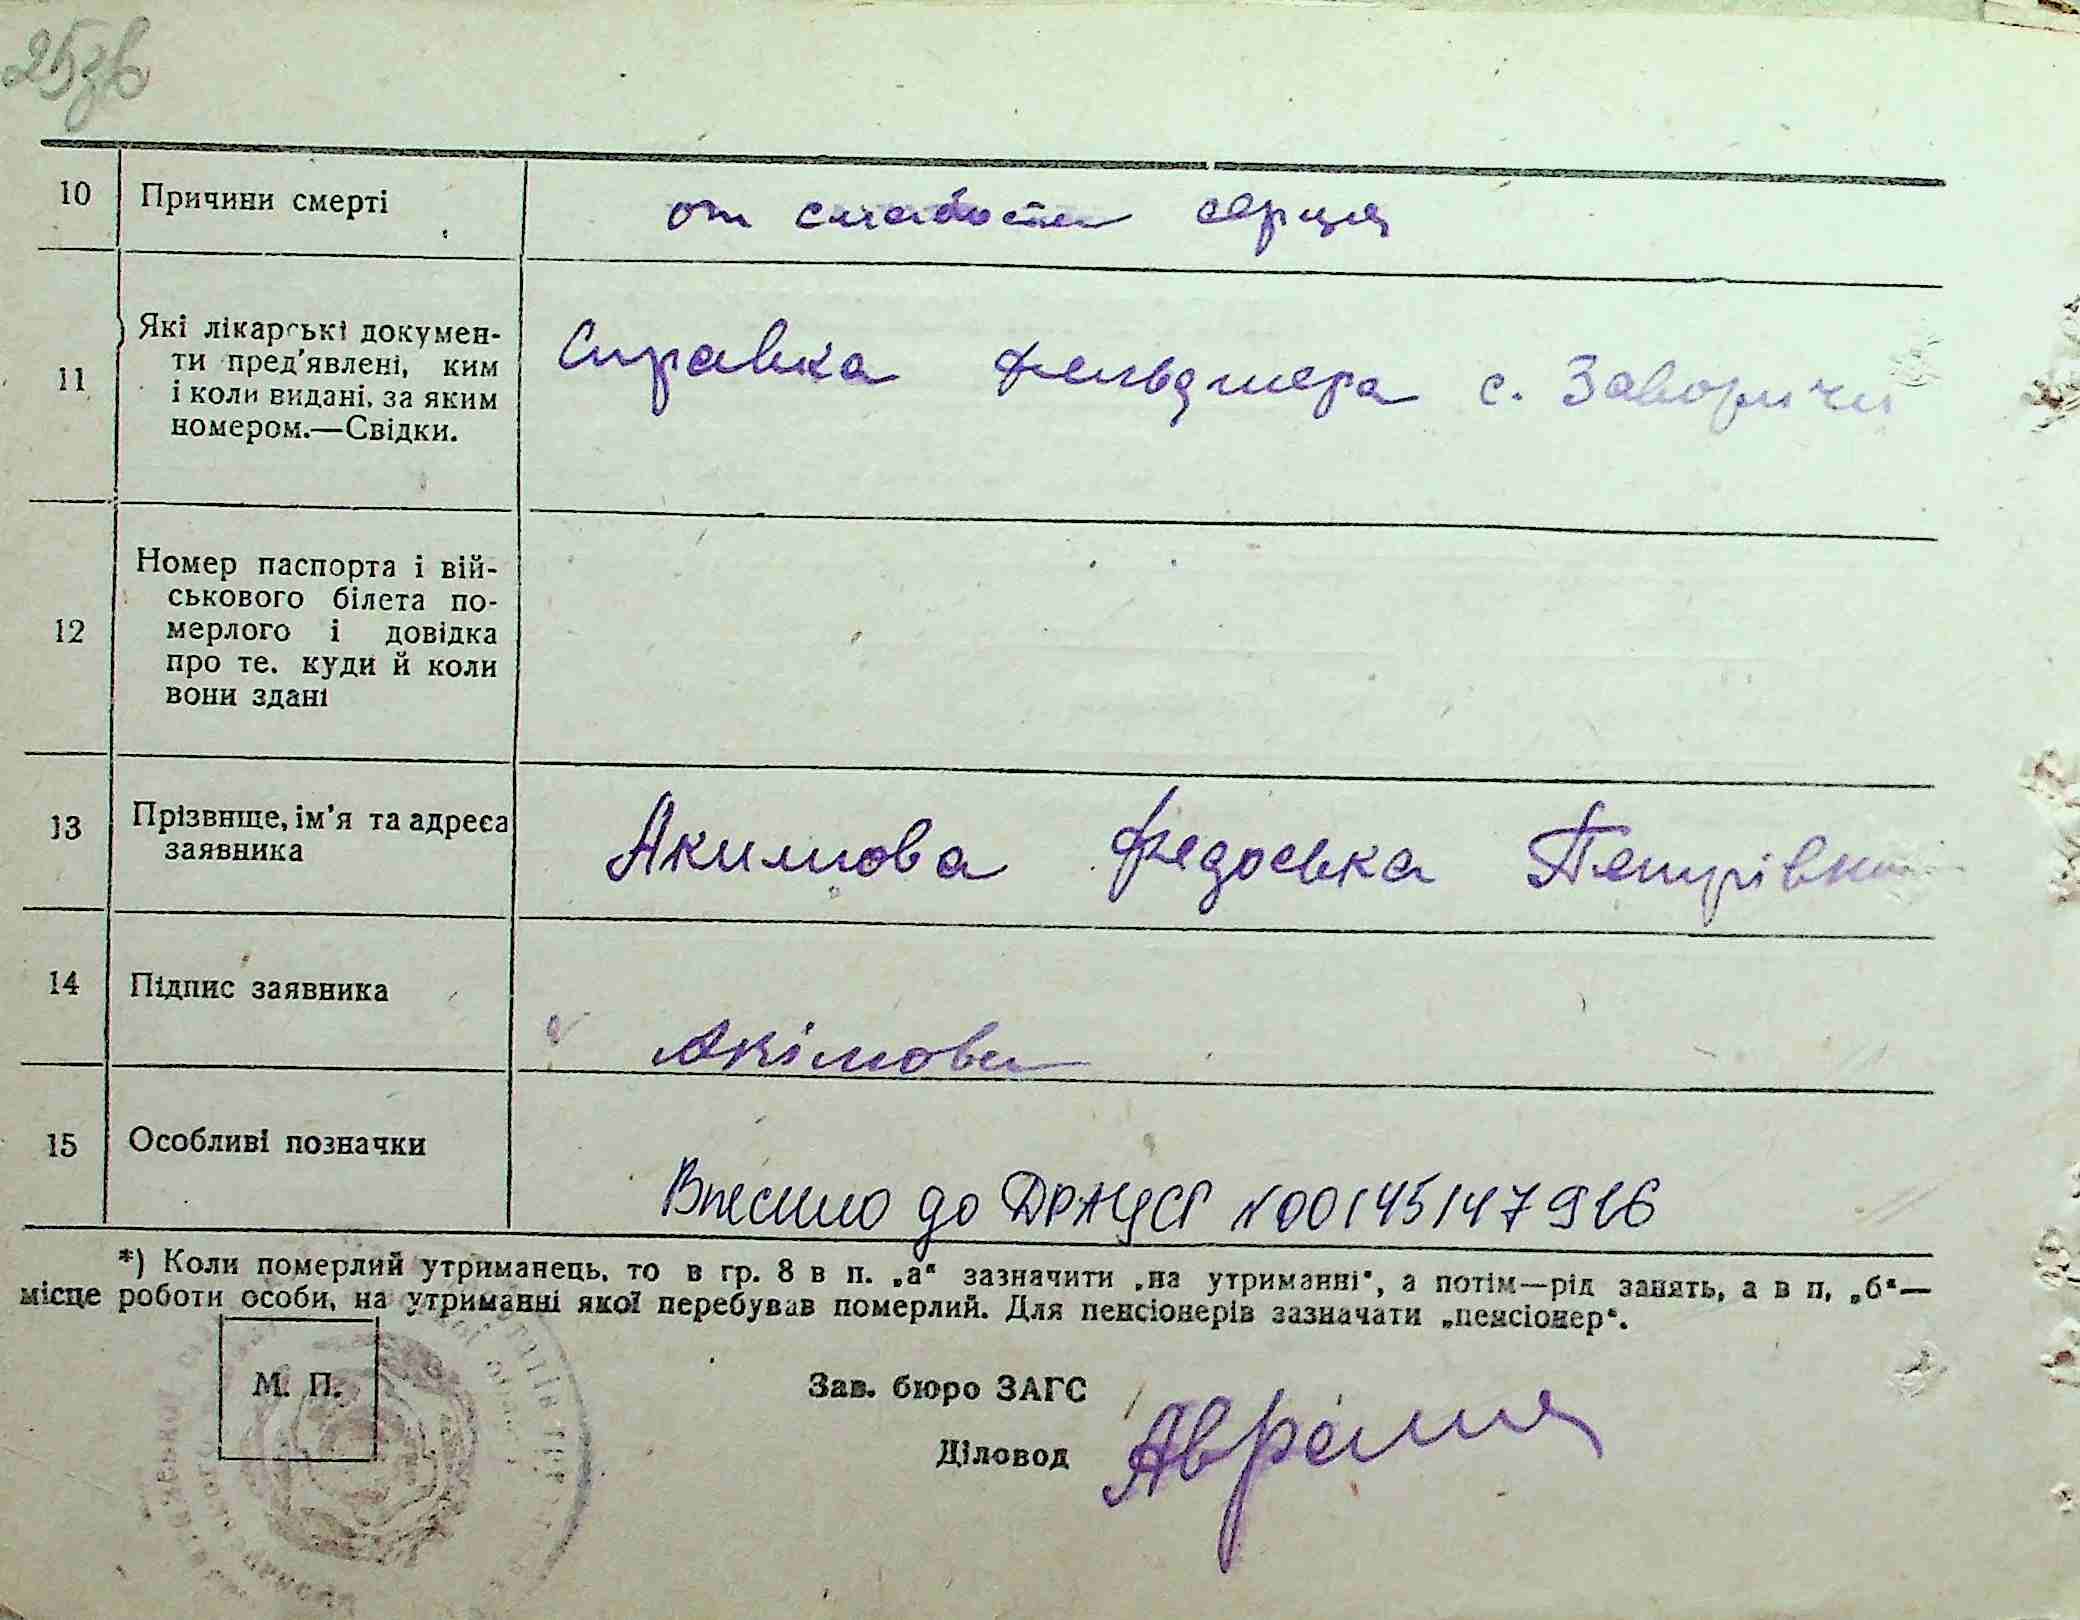 25зв
10 Причини смерті от слабости серця
11 Які лікарські докумен-
ти пред'явлені, ким
і коли видані, за яким
номером.—Свідки.
Справка фельдшера с. Заворичи
12 Номер паспорта і вій-
ськового білета по-
мерлого і довідка
про те. куди й коли
вони здані
13 Прізвище, ім'я та адреса
заявника
Акимова Федоська Петрівна
14 Підпис заявника
Акімова
15 Особливі позначки
Внесено до ДРАЦСГ №00145147916
*) Коли померлий утриманець, то в гр. 8 в п. „а“ зазначити „на утриманні“, а потім—рід занять, а в п, „б“—
місце роботи особи, на утриманні якої перебував померлий. Для пенсіонерів зазначати „пенсіонер“.
М. П.
Зав. бюро ЗАГС
Діловод